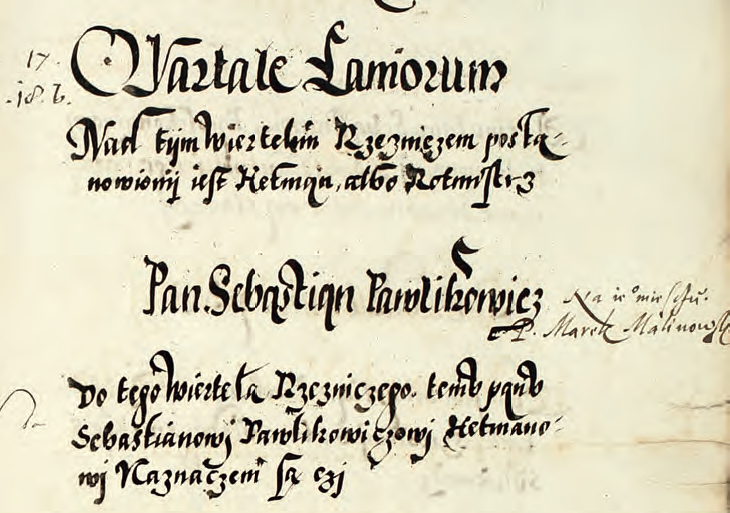 17
18. b.
Quartale Laniorum
Nad tijm Wiertelem Rzeźniczem posta-
nowionij iest Hetmąn, albo Rotmistrz
Pan Sebąstiąn Pawlikowicz
Na ie° mieiscu.
P. Marek Malinowsk
Do tego Wiertela Rzezniczego. temu pąnu
Sebastianowj Pawlikowiczowj Hetmano-
wj Naznaczeni są czj